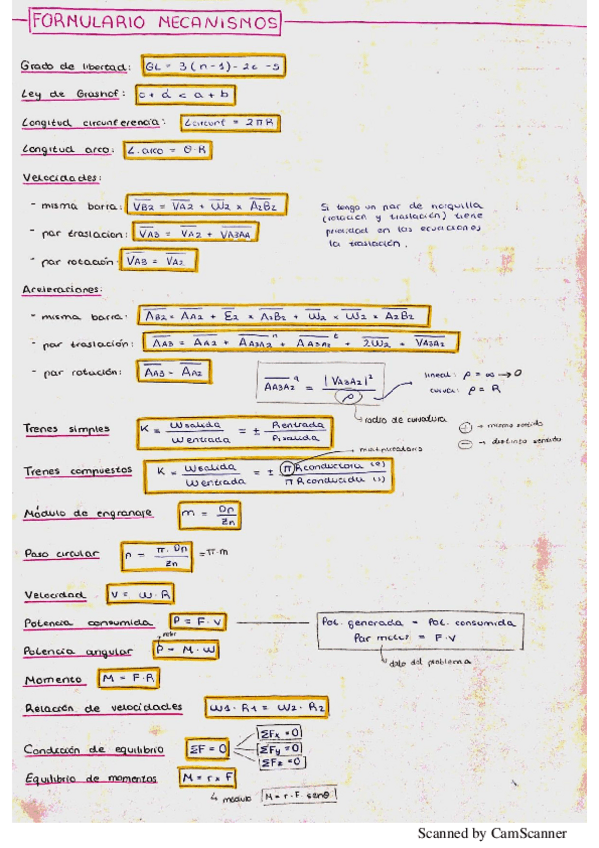 FORMULARIO MECANISMOS
Grado de libertad: GL = 3(n-1)-2c-s
Ley de Grashof: c + d < a + b
Longitud circunferencia: Lcircunf = 2πR
Longitud arco: L.arco = θ·R
Velocidades:
- misma barra: VB2 = VA2 + W2 x A2B2
Si tengo un par de horquilla
(rotación y traslación) tiene
prioridad en las ecuaciones
la traslación.
- par traslación: VA3 = VA2 + VA3A2
- par rotación: VA3 = VA2
Aceleraciones:
- misma barra: AB2 = AA2 + E2 x A2B2 + W2 x W2 x A2B2
- par traslación: AA3 = AA2 + AA3A2ⁿ + AA3A2ᵗ + 2W2 x VA3A2
- par rotación: AA3 = AA2
AA3A2ⁿ = |VA3A2|² / ρ
lineal: ρ = ∞ → 0
curva: ρ = R
radio de curvatura
Trenes simples K = Wsalida / Wentrada = ± Rentrada / Rsalida
+ → mismo sentido
- → distinto sentido
multiplicatorio
Trenes compuestos K = Wsalida / Wentrada = ± π Rconductora (e) / π Rconducida (s)
Módulo de engranaje m = Dn / Zn
Paso circular p = π·Dn / Zn = π·m
Velocidad V = W·R
Potencia consumida P = F·V
Pot. generada = Pot. consumida
Par motor = F·V
dato del problema
Potencia angular P = M·W
Momento M = F·R
Relación de velocidades W1·R1 = W2·R2
Condición de equilibrio ΣF = 0
ΣFx = 0
ΣFy = 0
ΣFz = 0
Equilibrio de momentos M = r x F
módulo M = r·F·senθ
Scanned by CamScanner